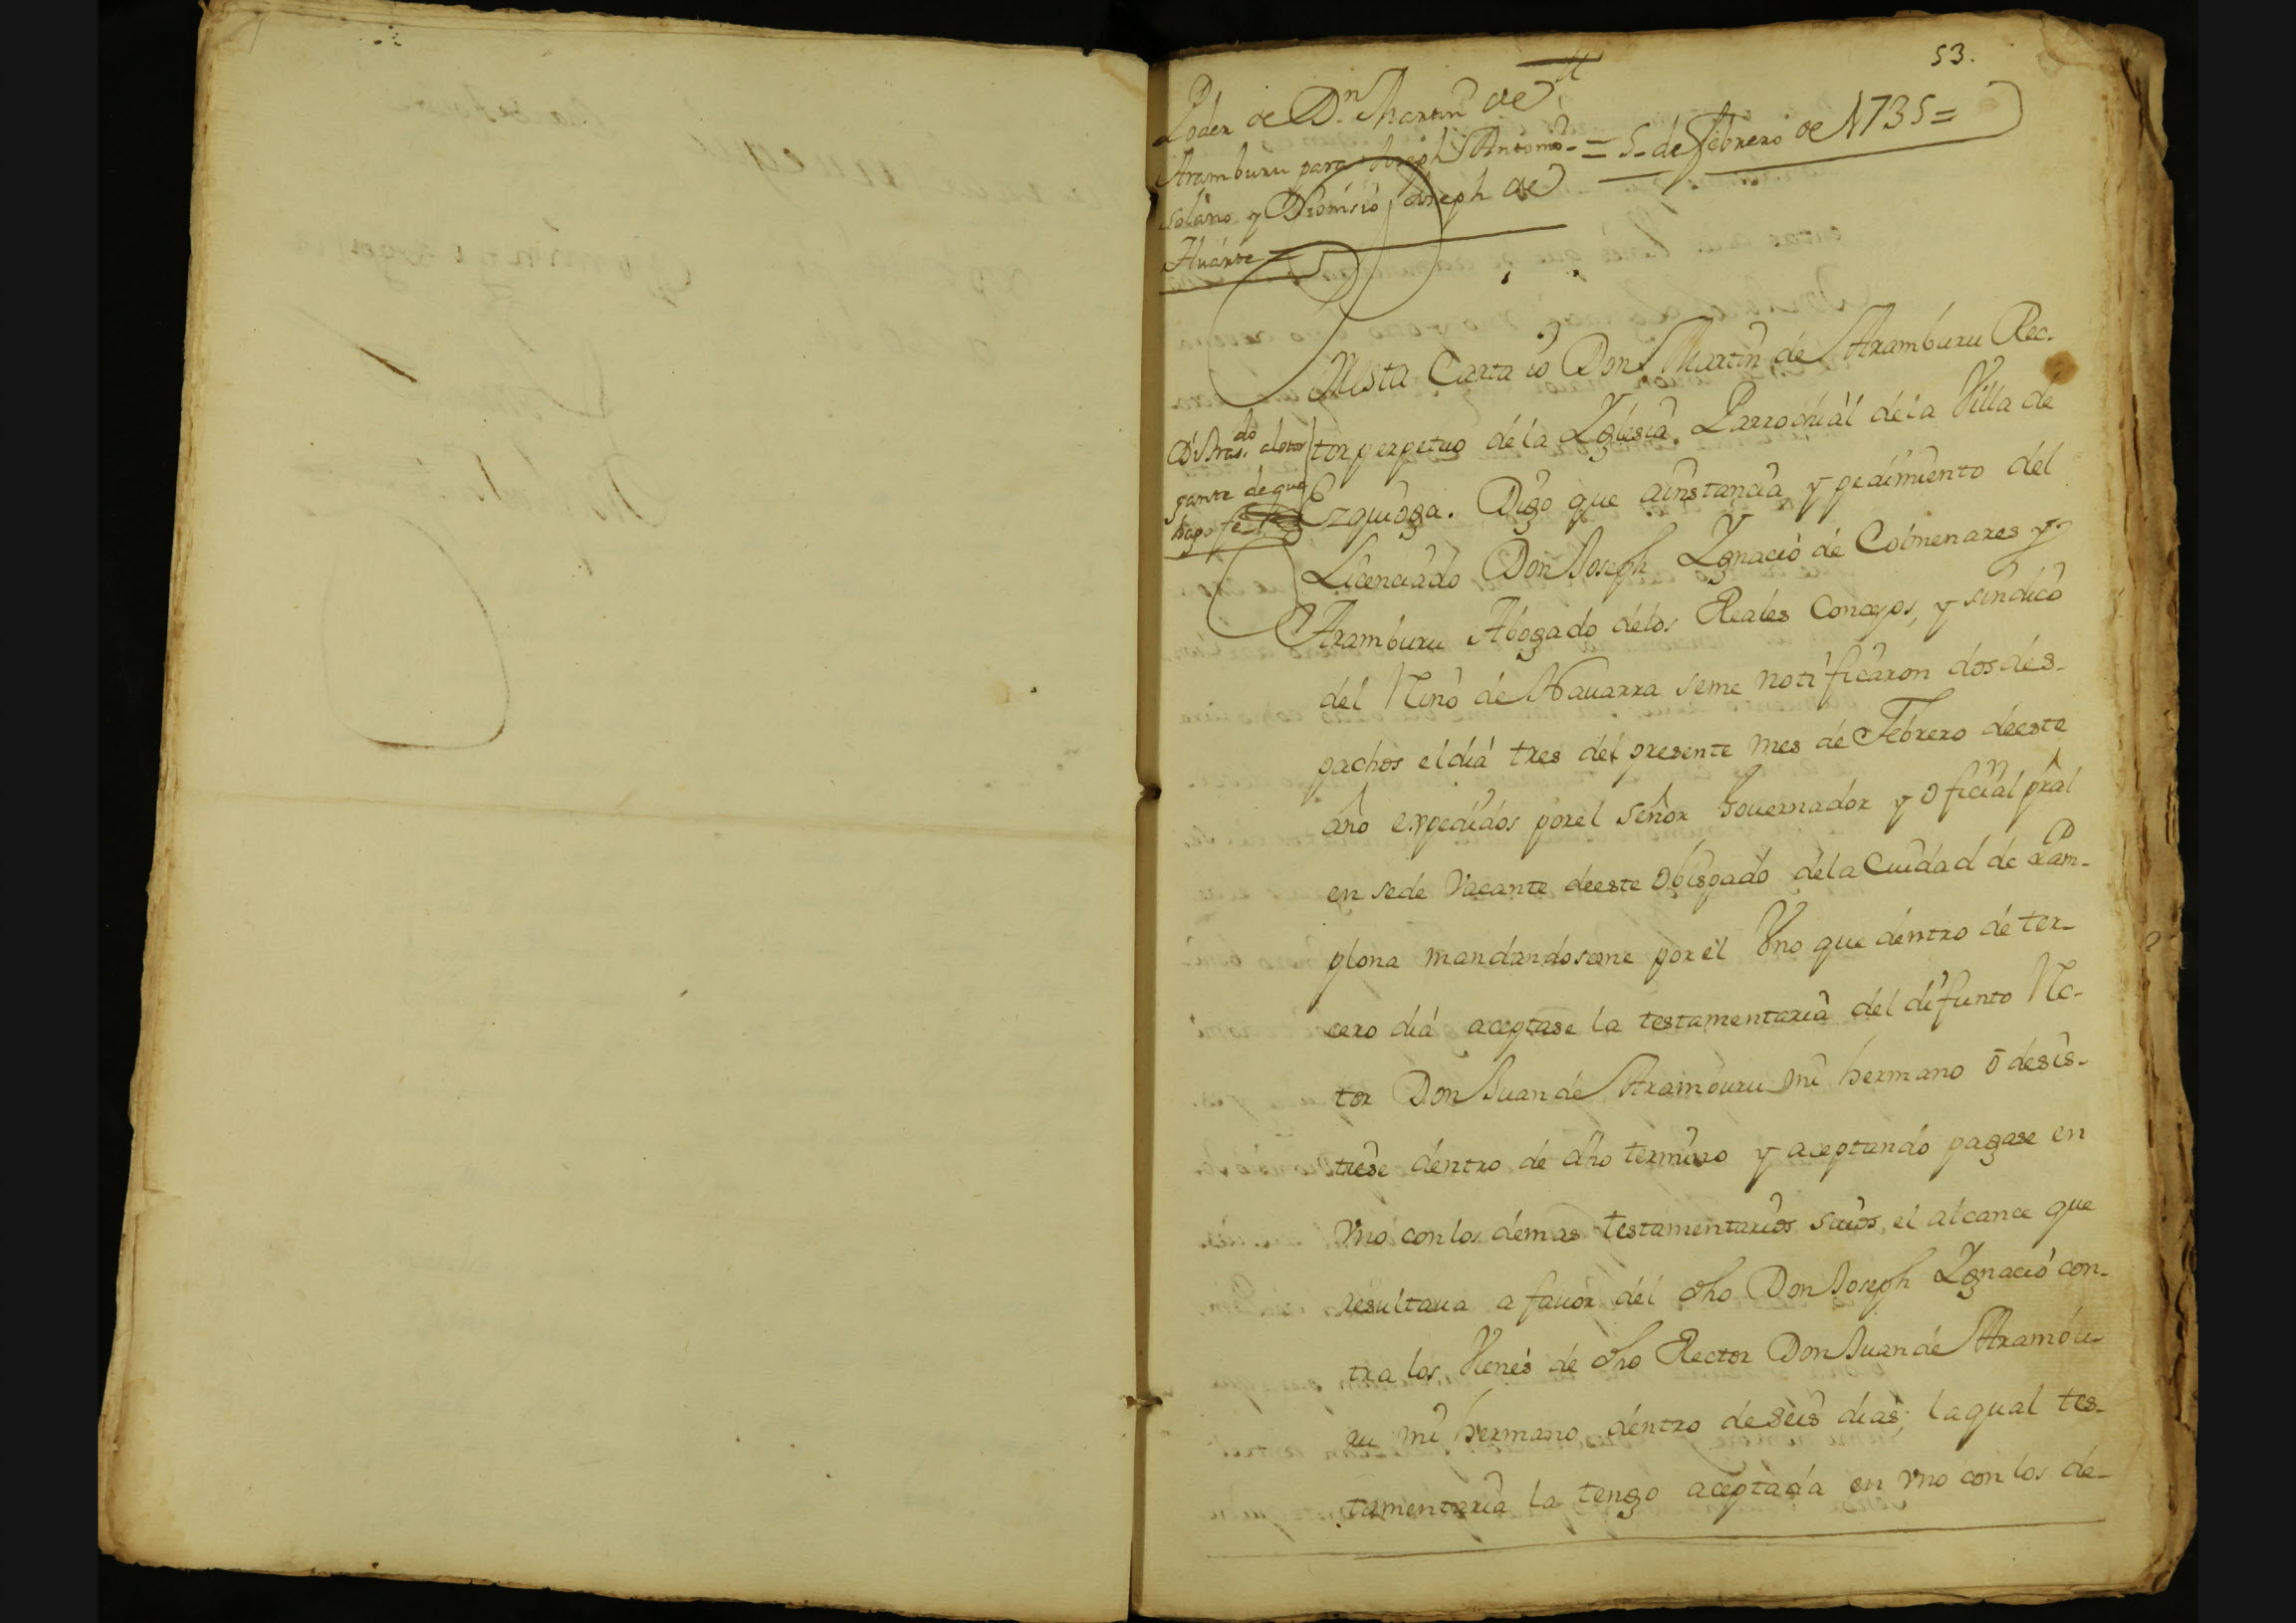 53.
Poder de Dn. Martin de
Aramburu para Joseph Antonio = 5 de febrero de 1735 =
solano y Dionisio Joseph de
Huarte
En esta Carta io Don Martin de Aramburu Rec-
tor perpetuo de la Yglesia Parrochial de la Villa de
Ezquioga. Digo que a instancia y pedimiento del
Licenciado Don Joseph Ygnacio de Colmenares y
Aramburu Abogado de los Reales Concejos, y sindico
del Rno de Nauarra seme notificaron dos des-
pachos el dia tres del presente mes de Febrero deeste
año expedidos por el señor Gouernador y oficial pral
en sede Vacante deeste obispado de la Ciudad de Pam-
plona mandandoseme por el Vno que dentro de ter-
cero dia aceptase la testamentaria del difunto Rec-
tor Don Juan de Aramburu mi hermano o desis-
tiese dentro de dho termino y aceptando pagase en
Vno con los demas testamentarios suios, el alcance que
resultaua a fauor del dho Don Joseph Ygnacio con-
tra los Vienes de dho Rector Don Juan de Arambu-
ru mi hermano dentro de seis dias; la qual tes-
tamentaria la tengo aceptada en vno con los de-
do al otor
gante de que
hago fe